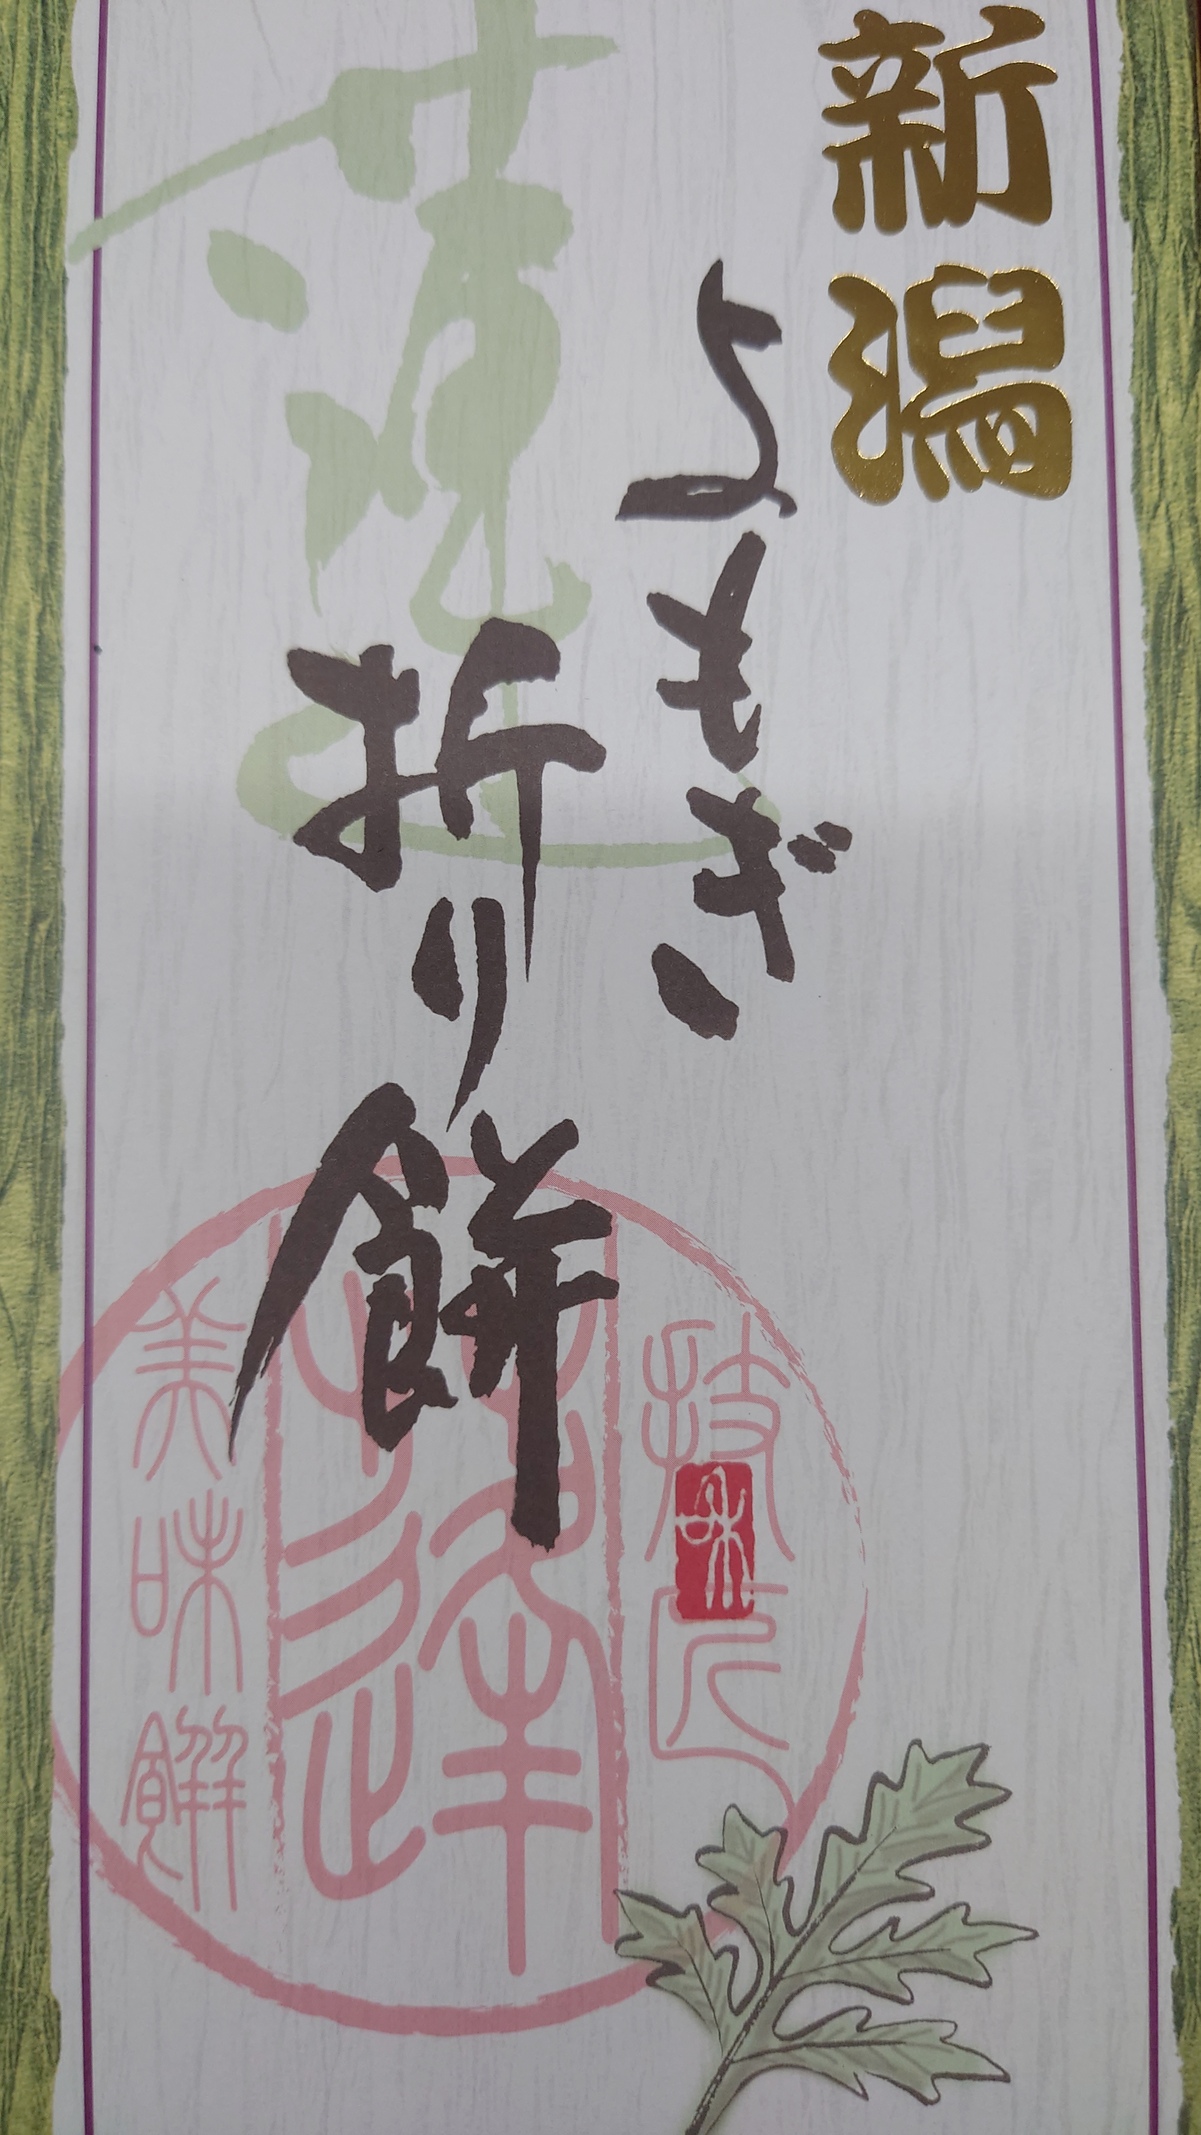 新潟
よもぎ
折り餅
技匠
達
美味餅
味